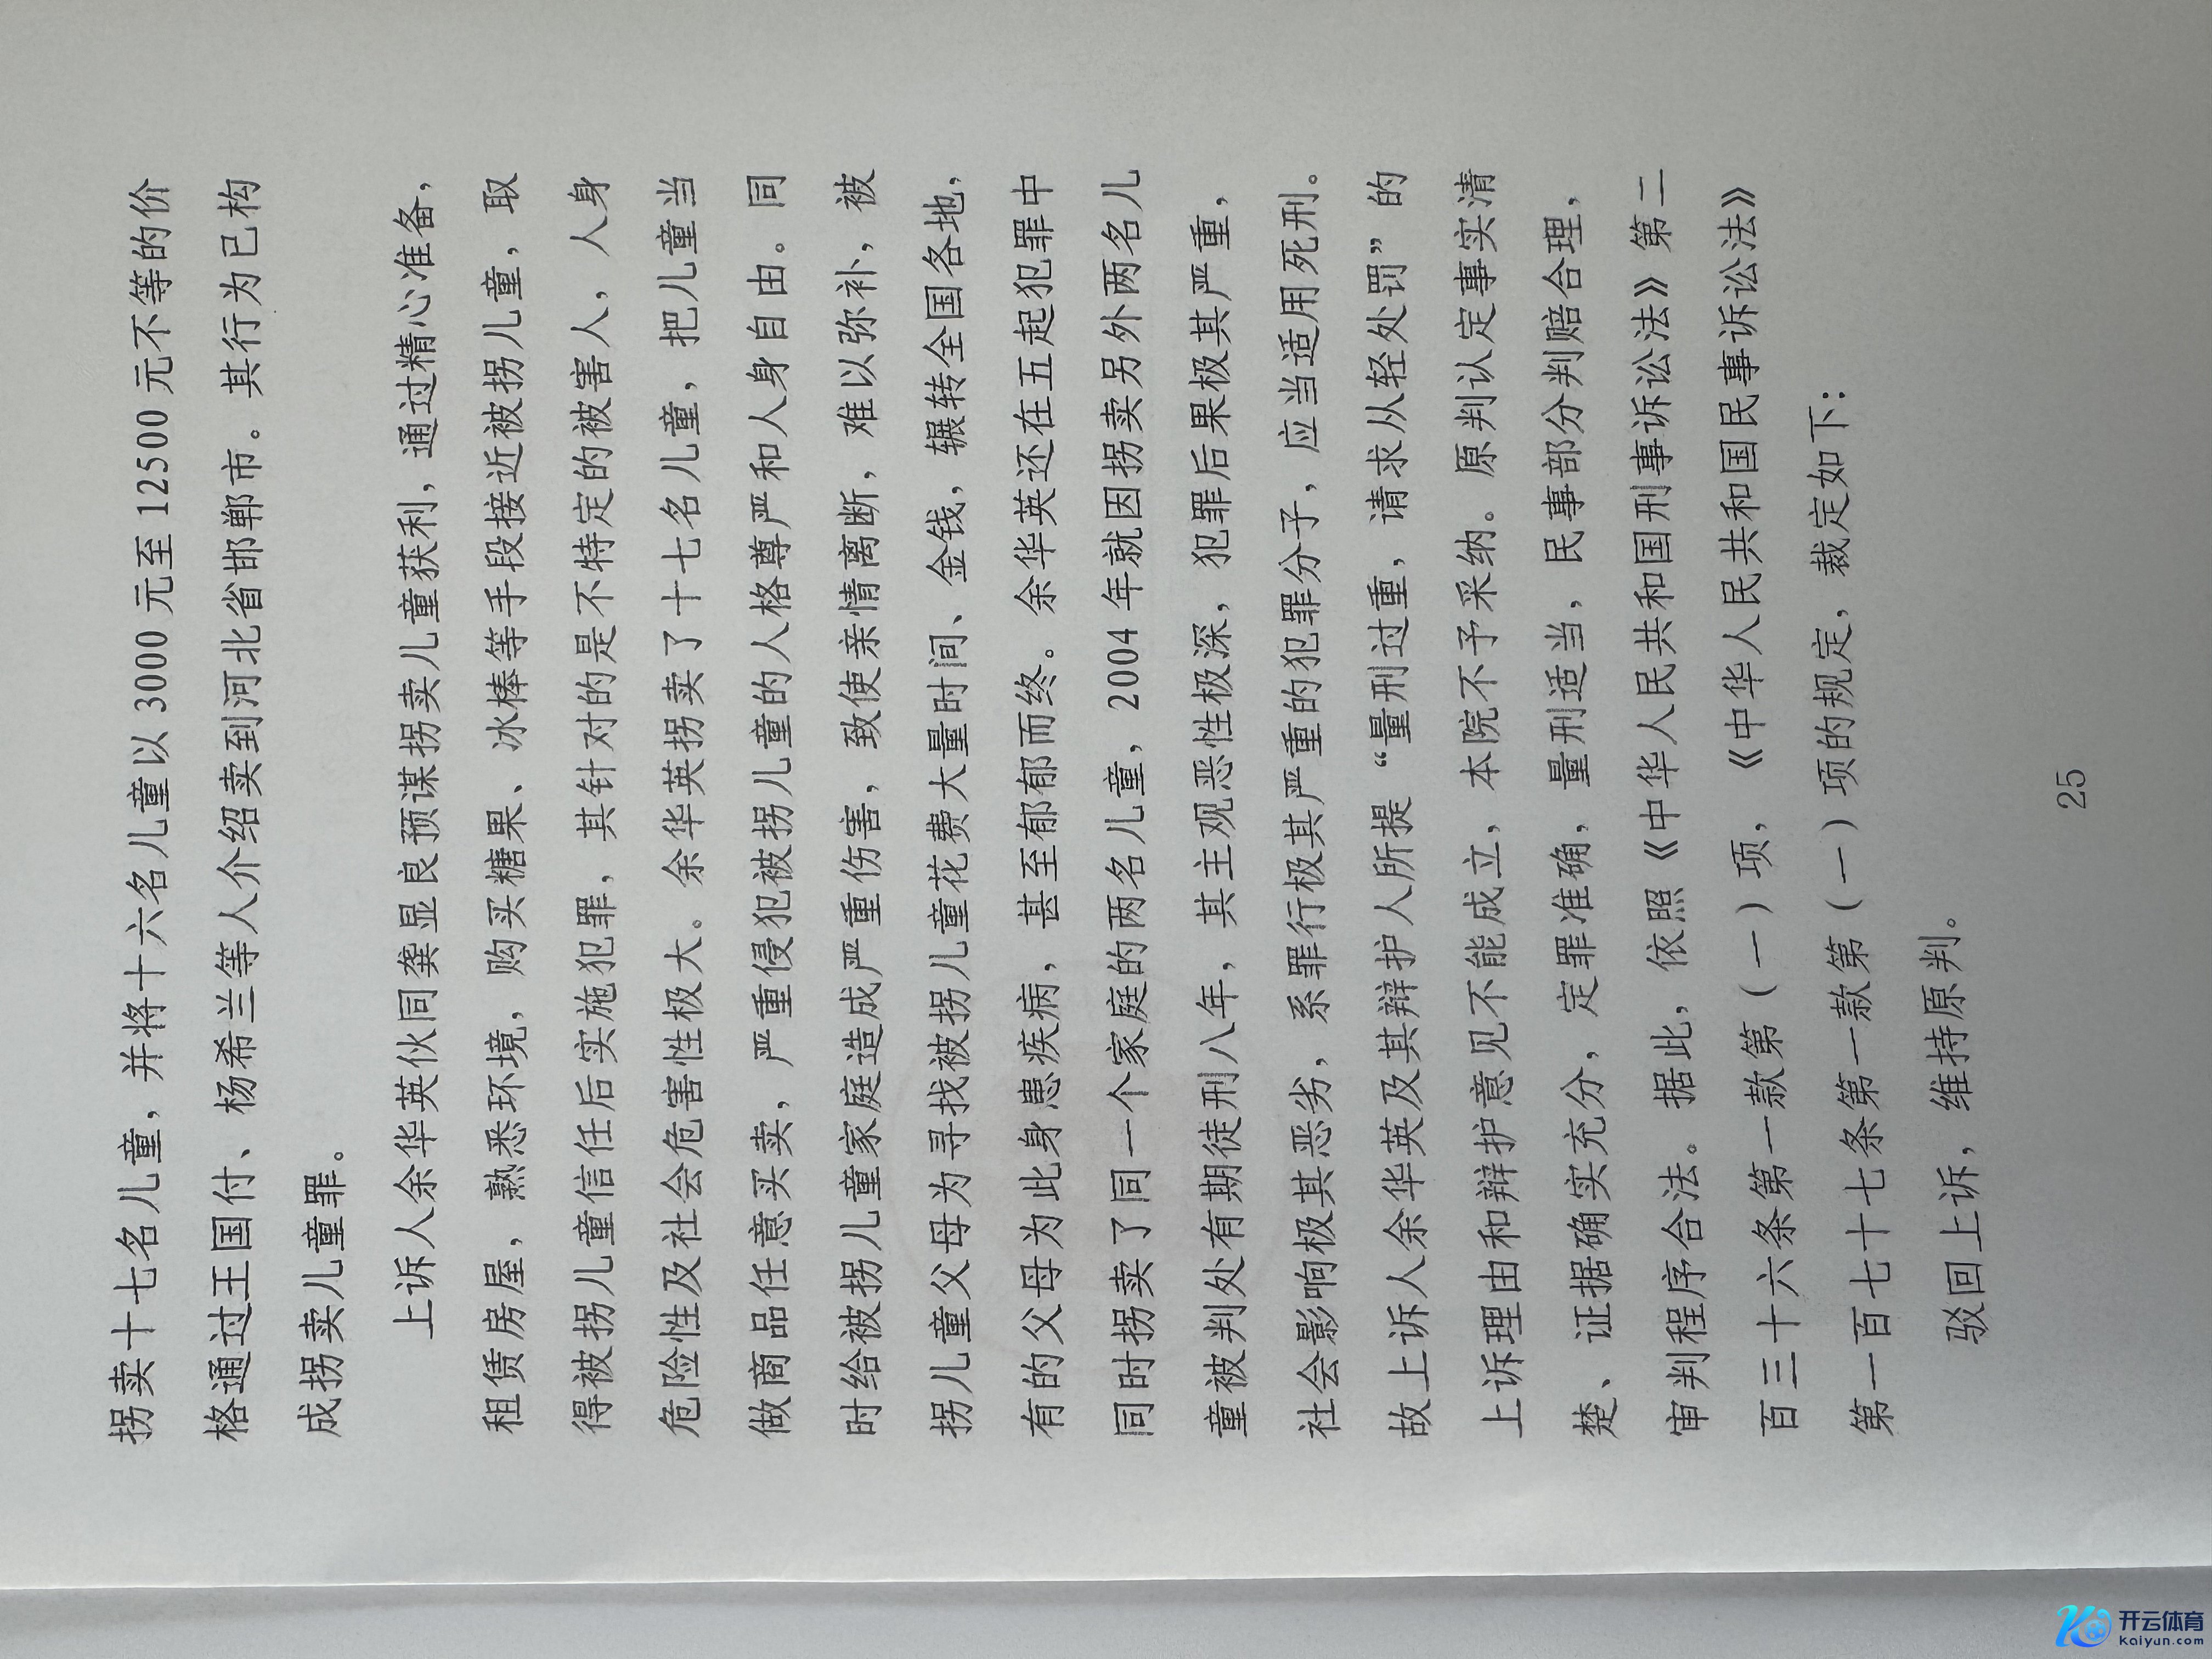 拐卖十七名儿童，并将十六名儿童以 3000 元至 12500 元不等的价
格通过王国付、杨希兰等人介绍卖到河北省邯郸市。其行为已构
成拐卖儿童罪。
上诉人余华英伙同龚显良预谋拐卖儿童获利，通过精心准备，
租赁房屋，熟悉环境，购买糖果、冰棒等手段接近被拐儿童，取
得被拐儿童信任后实施犯罪，其针对的是不特定的被害人，人身
危险性及社会危害性极大。余华英拐卖了十七名儿童，把儿童当
做商品任意买卖，严重侵犯被拐儿童的人格尊严和人身自由。同
时给被拐儿童家庭造成严重伤害，致使亲情离断，难以弥补，被
拐儿童父母为寻找被拐儿童花费大量时间、金钱，辗转全国各地，
有的父母为此身患疾病，甚至郁郁而终。余华英还在五起犯罪中
同时拐卖了同一个家庭的两名儿童，2004 年就因拐卖另外两名儿
童被判处有期徒刑八年，其主观恶性极深，犯罪后果极其严重，
社会影响极其恶劣，系罪行极其严重的犯罪分子，应当适用死刑。
故上诉人余华英及其辩护人所提“量刑过重，请求从轻处罚”的
上诉理由和辩护意见不能成立，本院不予采纳。原判认定事实清
楚、证据确实充分，定罪准确，量刑适当，民事部分判赔合理，
审判程序合法。据此，依照《中华人民共和国刑事诉讼法》第二
百三十六条第一款第（一）项，《中华人民共和国民事诉讼法》
第一百七十七条第一款第（一）项的规定，裁定如下：
驳回上诉，维持原判。
25
开云体育
kaiyun.com